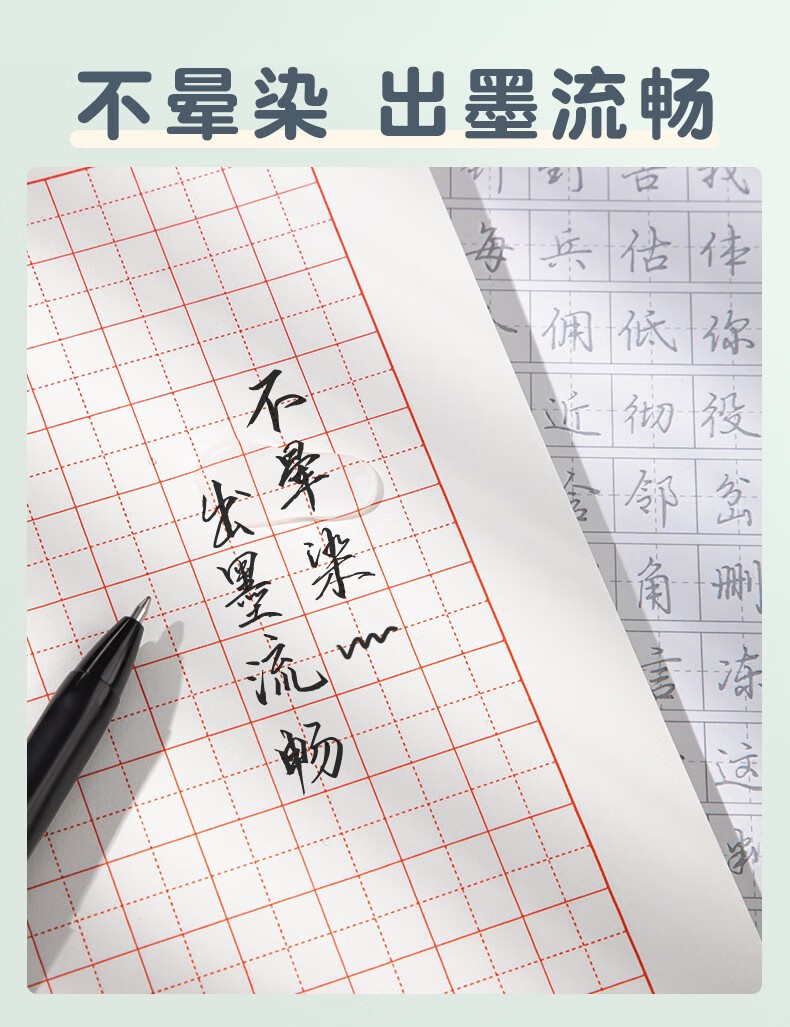 不晕染 出墨流畅
不晕染
出墨流畅
我
每兵估体
佣低你
近彻役
邻岔
角删
言冻
这